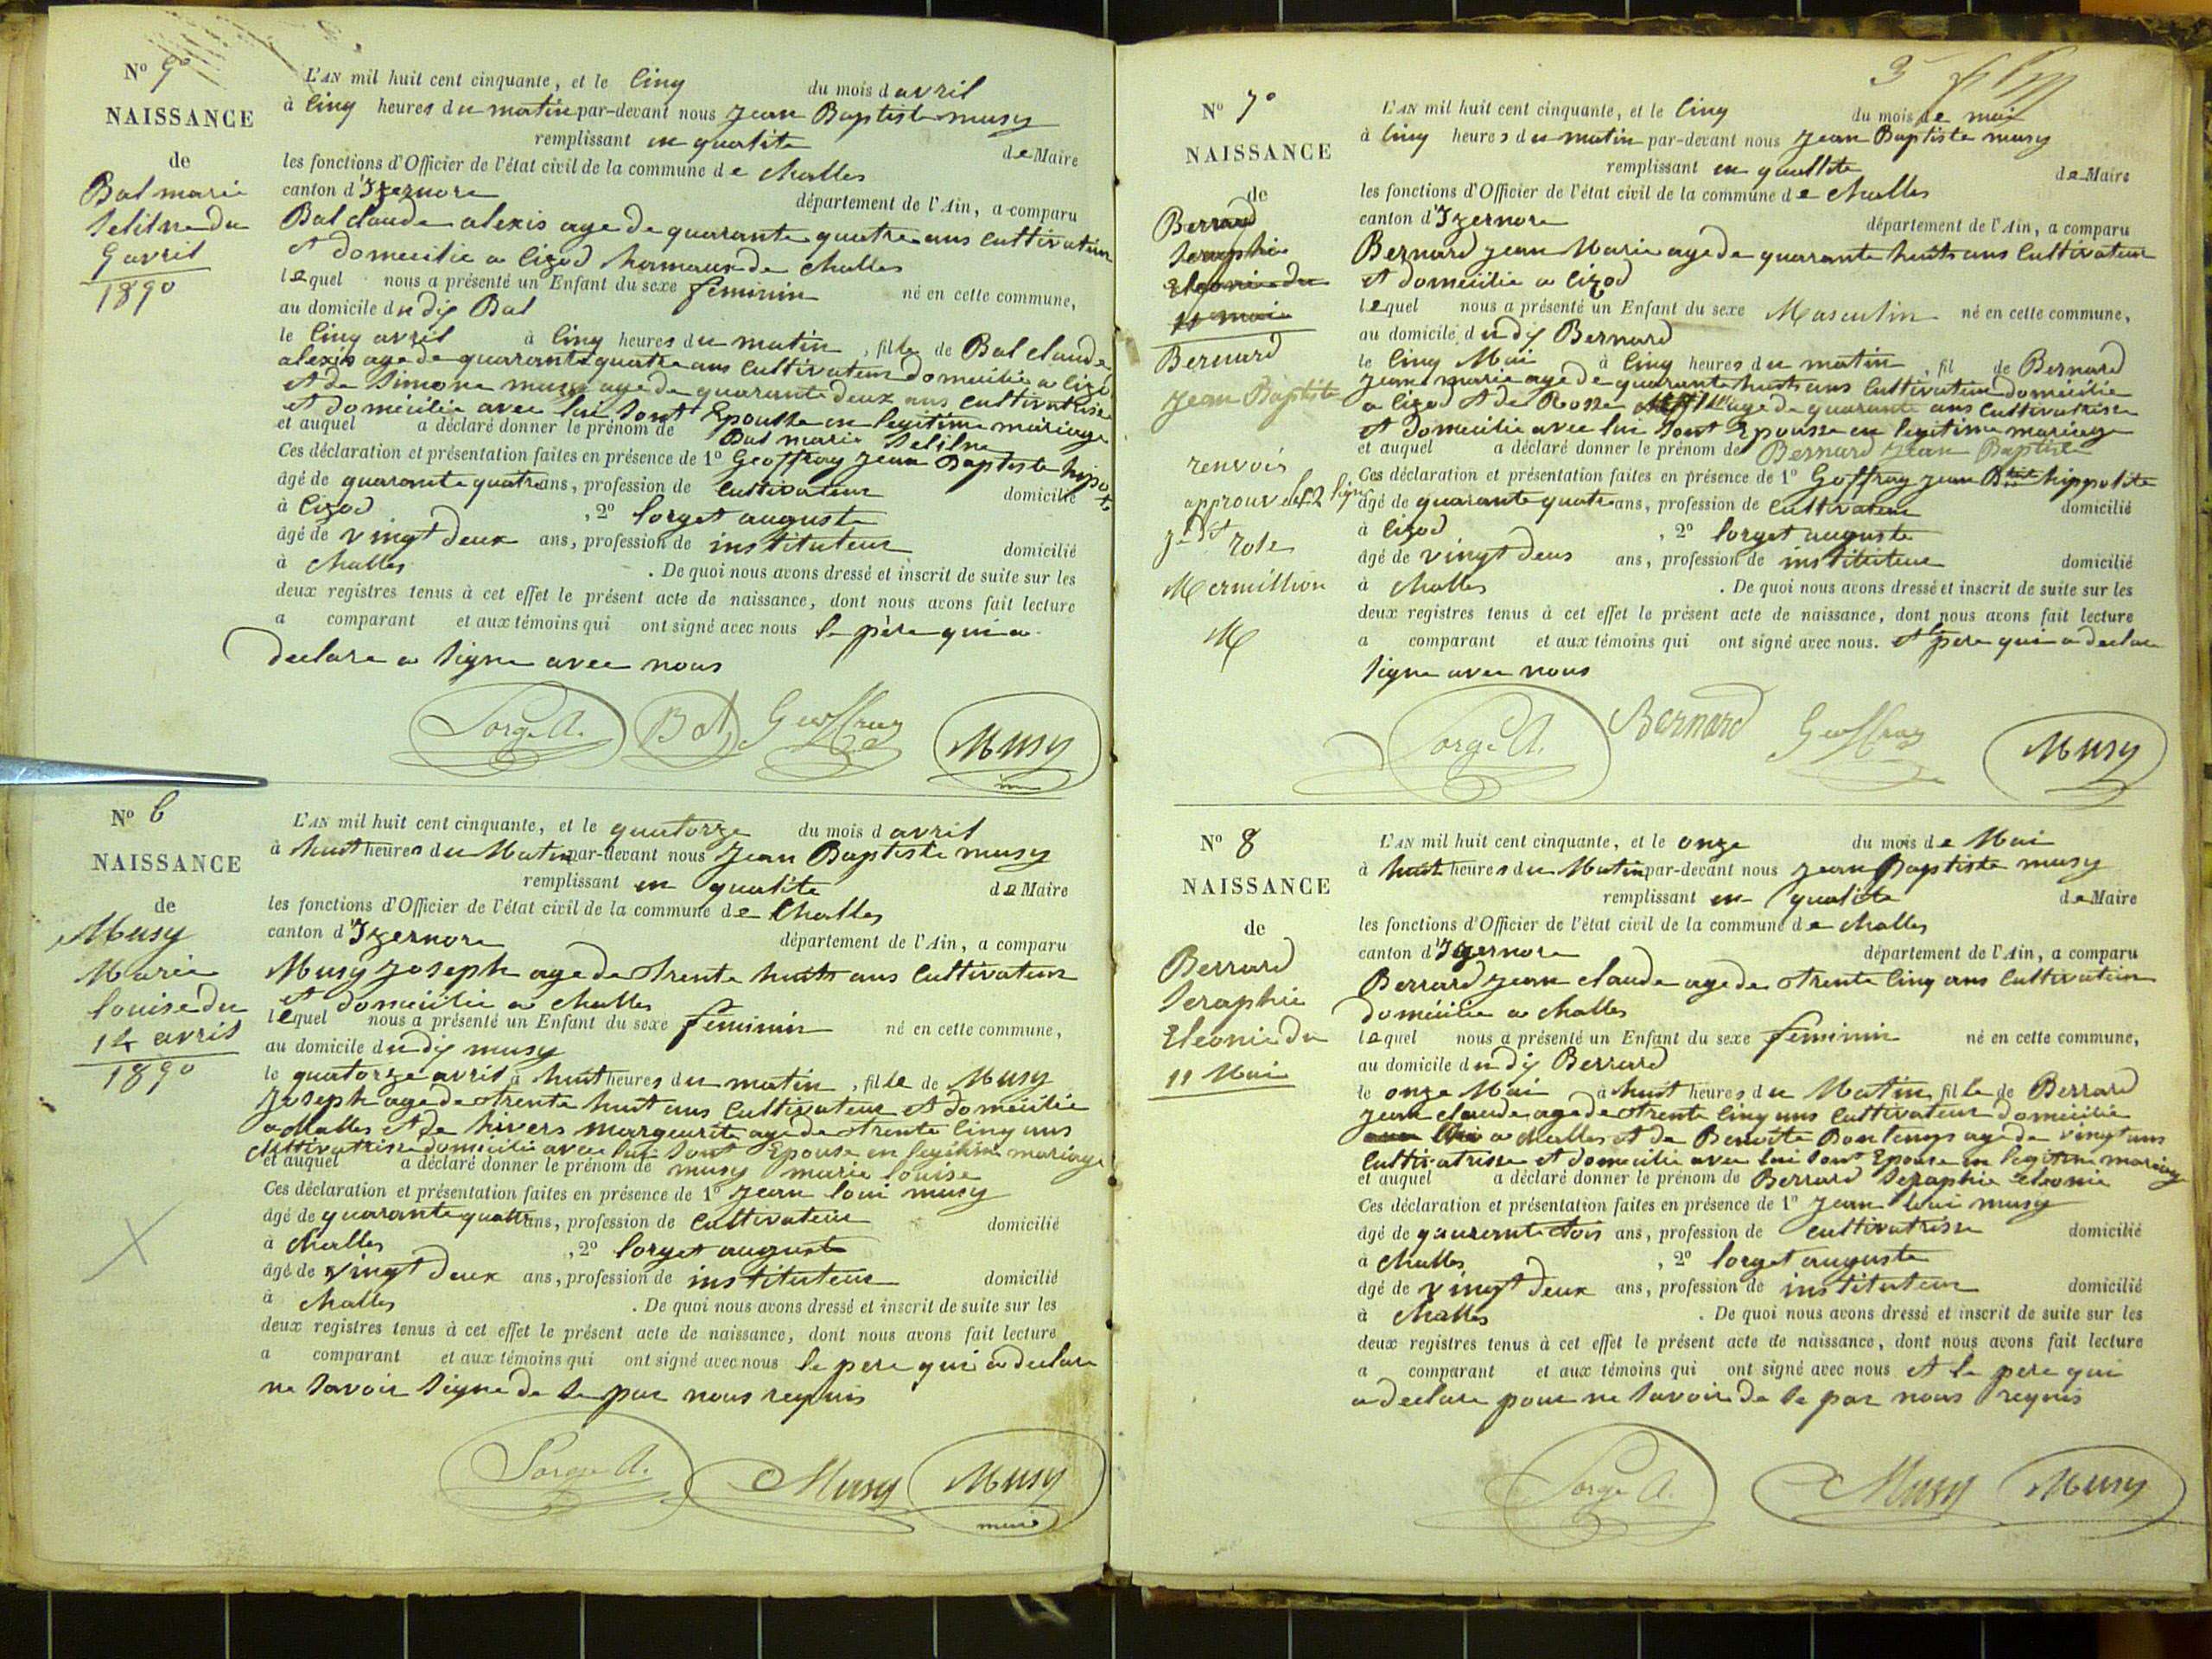 N° 5°
NAISSANCE
de
Bal marie
Seliline du
5 avril
1850
L'AN mil huit cent cinquante, et le cinq du mois d avril
à cinq heures du matin par-devant nous Jean Baptiste musy
remplissant en qualite de Maire
les fonctions d'Officier de l'état civil de la commune de challes
canton d'Izernore département de l'Ain, a comparu
Bal claude alexis age de quarante quatre ans cultivateur
et domicilie a cizod hameau de challes
lequel nous a présenté un Enfant du sexe feminin né en cette commune,
au domicile du dig Bal
le cinq avril à cinq heures du matin, fille de Bal claude
alexis age de quarante quatre ans cultivateur domicilie a cizod
et de Simone musy age de quarante deux ans cultivatrise
et domicilie avec lui sont Epousse en legitime mariage
et auquel a déclaré donner le prénom de Bal marie Seliline
Ces déclaration et présentation faites en présence de 1° Geoffray Jean Baptiste
âgé de quarante quatre ans, profession de cultivateur domicilié
à cizod, 2° lorget auguste
âgé de vingt deux ans, profession de instituteur domicilié
à challes. De quoi nous avons dressé et inscrit de suite sur les
deux registres tenus à cet effet le présent acte de naissance, dont nous avons fait lecture
a comparant et aux témoins qui ont signé avec nous le père qui a
declare a signe avec nous
Bal Geoffray Musy
N° 6
NAISSANCE
de
Musy
Marie
louise du
14 avril
1850
L'AN mil huit cent cinquante, et le quatorze du mois d avril
à huit heures du Matin par-devant nous Jean Baptiste musy
remplissant en qualite de Maire
les fonctions d'Officier de l'état civil de la commune de Challes
canton d'Izernore département de l'Ain, a comparu
Musy Joseph age de trente huit ans cultivateur
et domicilie a challes
lequel nous a présenté un Enfant du sexe feminin né en cette commune,
au domicile du dig musy
le quatorze avril à huit heures du matin, fille de Musy
Joseph age de trente huit ans cultivateur et domicilie
a challes et de hivers marguerite age de trente cinq ans
cultivatrise domicilie avec lui sont Epouse en legitime mariage
et auquel a déclaré donner le prénom de musy marie louise
Ces déclaration et présentation faites en présence de 1° Jean loui musy
âgé de quarante quatre ans, profession de cultivateur domicilié
à challes, 2° lorget auguste
âgé de vingt deux ans, profession de instituteur domicilié
à challes. De quoi nous avons dressé et inscrit de suite sur les
deux registres tenus à cet effet le présent acte de naissance, dont nous avons fait lecture
a comparant et aux témoins qui ont signé avec nous le pere qui a declare
ne savoir signe de se par nous requis
Musy Musy
3
N° 7°
NAISSANCE
de
Berrard
Seraphie
Eleonie du
11 mai
Bernard
Jean Baptiste
renvois
approuve
Mermillion
L'AN mil huit cent cinquante, et le cinq du mois de mai
à cinq heures du matin par-devant nous Jean Baptiste musy
remplissant en quallite de Maire
les fonctions d'Officier de l'état civil de la commune de challes
canton d'Izernore département de l'Ain, a comparu
Bernard Jean Marie age de quarante huit ans cultivateur
et domicilie a cizod
lequel nous a présenté un Enfant du sexe Masculin né en cette commune,
au domicile du dig Bernard
le cinq Mai à cinq heures du matin, fil de Bernard
Jean marie age de quarante huit ans cultivateur domicilie
a cizod et de Rosse age de quarante ans cultivatrise
et domicilie avec lui sont Epousse en legitime mariage
et auquel a déclaré donner le prénom de Bernard Jean Baptiste
Ces déclaration et présentation faites en présence de 1° Geoffray Jean Btiste hippolite
âgé de quarante quatre ans, profession de cultivateur domicilié
à cizod, 2° lorget auguste
âgé de vingt deus ans, profession de instituteur domicilié
à challes. De quoi nous avons dressé et inscrit de suite sur les
deux registres tenus à cet effet le présent acte de naissance, dont nous avons fait lecture
a comparant et aux témoins qui ont signé avec nous. et le pere qui a declare
signe avec nous
Bernard Geoffray Musy
N° 8
NAISSANCE
de
Berrard
Seraphie
Eleonie du
11 Mai
L'AN mil huit cent cinquante, et le onze du mois de Mai
à huit heures du Matin par-devant nous Jean Baptiste musy
remplissant en qualite de Maire
les fonctions d'Officier de l'état civil de la commune de challes
canton d'Izernore département de l'Ain, a comparu
Berrard Jean claude age de trente cinq ans cultivateur
domicilie a challes
lequel nous a présenté un Enfant du sexe feminin né en cette commune,
au domicile du dig Berrard
le onze Mai à huit heures du Matin fille de Berrard
Jean claude age de trente cinq ans cultivateur domicilie
a challes et de Benoite Bontemps age de vingt ans
cultivatrisse et domicilie avec lui sont Epouse en legitime mariage
et auquel a déclaré donner le prénom de Berrard Seraphie Eleonie
Ces déclaration et présentation faites en présence de 1° Jean loui musy
âgé de ans, profession de cultivatrisse domicilié
à challes, 2° lorget auguste
âgé de vingt deux ans, profession de instituteur domicilié
à challes. De quoi nous avons dressé et inscrit de suite sur les
deux registres tenus à cet effet le présent acte de naissance, dont nous avons fait lecture
a comparant et aux témoins qui ont signé avec nous et le pere qui
a declare pour ne savoir de se par nous requis
Musy Musy